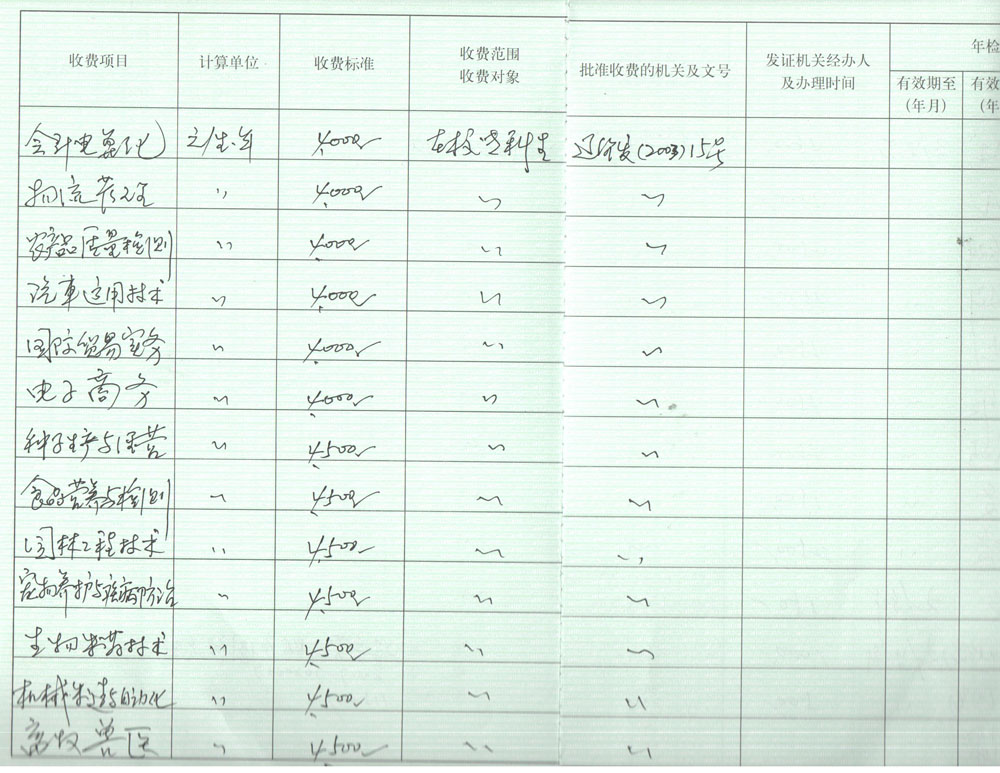 收费项目 计算单位 收费标准 收费范围 收费对象 批准收费的机关及文号 发证机关经办人 及办理时间 年检
有效期至 (年月) 有效 (年
会计电算化 元/生.年 4000 在校专科生 辽价发(2003)15号
物流管理 〃 4000 〃 〃
农产品质量检测 〃 4000 〃 〃
汽车运用技术 〃 4000 〃 〃
国际贸易实务 〃 4000 〃 〃
电子商务 〃 4000 〃 〃
种子生产与经营 〃 4500 〃 〃
食品营养与检测 〃 4500 〃 〃
园林工程技术 〃 4500 〃 〃
宠物养护与疫病防治 〃 4500 〃 〃
生物制药技术 〃 4500 〃 〃
机械制造与自动化 〃 4500 〃 〃
畜牧兽医 〃 4500 〃 〃